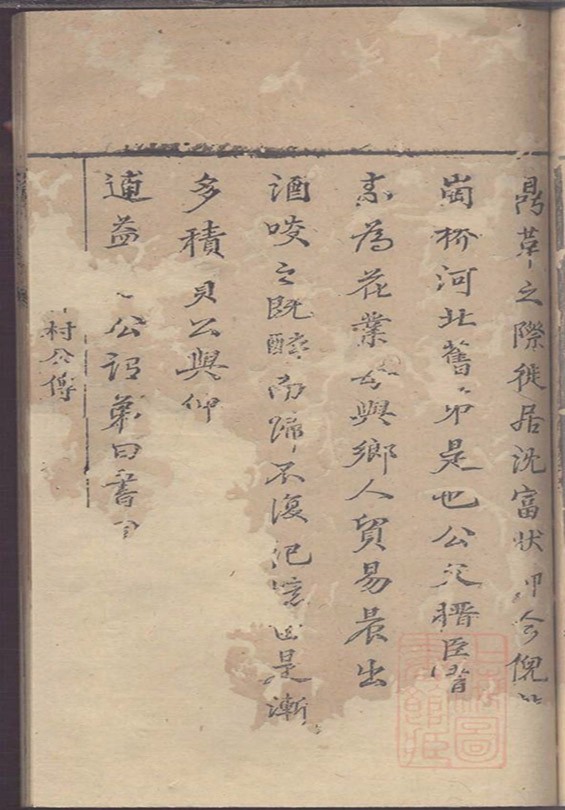 鼎革之際徙居沈富狀即今倪
尚桥河北舊
是也公父搢臣
素為花業公與鄉人貿易晨出
酒啖之既醉而歸不復記憶由是漸
多積貝公與仰
逋益
公詔弟曰書
村公傳